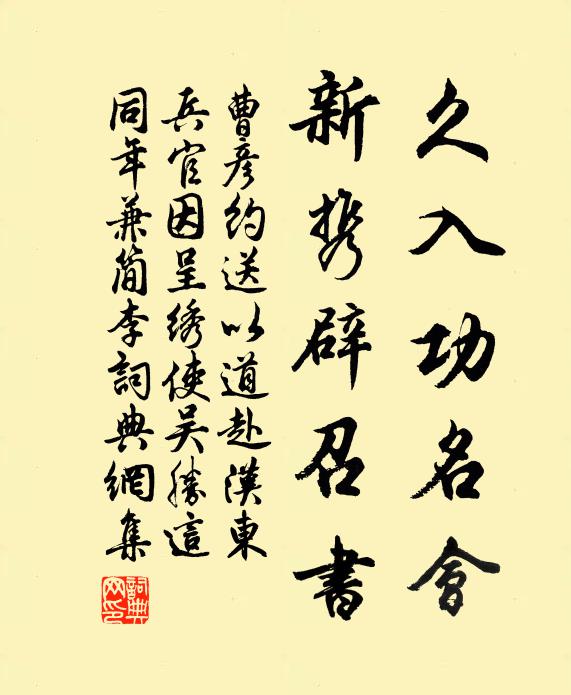 久入功名會
新携辟召書
曹彦約送以道赴漢東
兵官因呈綉使吴勝這
同年兼簡李詞典網集
詞典網印